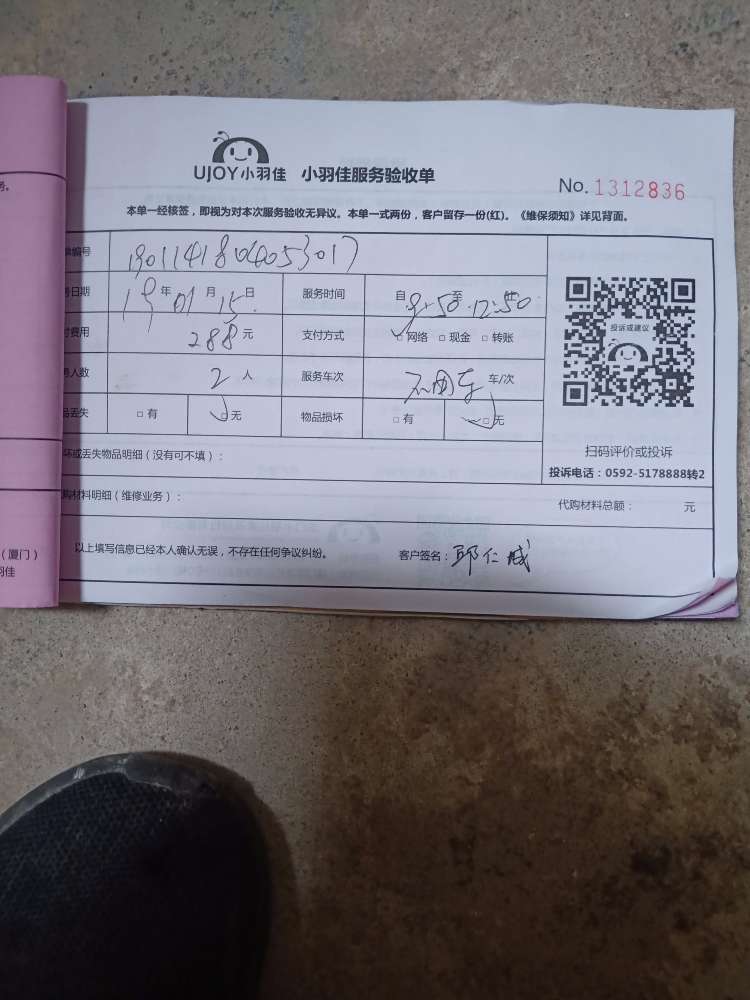 UJOY小羽佳 小羽佳服务验收单
No. 1312836
本单一经核签，即视为对本次服务验收无异议。本单一式两份，客户留存一份(红)。《维保须知》详见背面。
编号 1901141804053017
日期 19年01月15日 服务时间 自9:50至12:50
费用 288元 支付方式 网络 现金 转账
人数 2人 服务车次 不用车 车/次
丢失 有 无 物品损坏 有 无
投诉或建议
扫码评价或投诉
投诉电话：0592-5178888转2
坏或丢失物品明细（没有可不填）：
购材料明细（维修业务）： 代购材料总额： 元
以上填写信息已经本人确认无误，不存在任何争议纠纷。 客户签名：邱仁
务。
（厦门）
羽佳